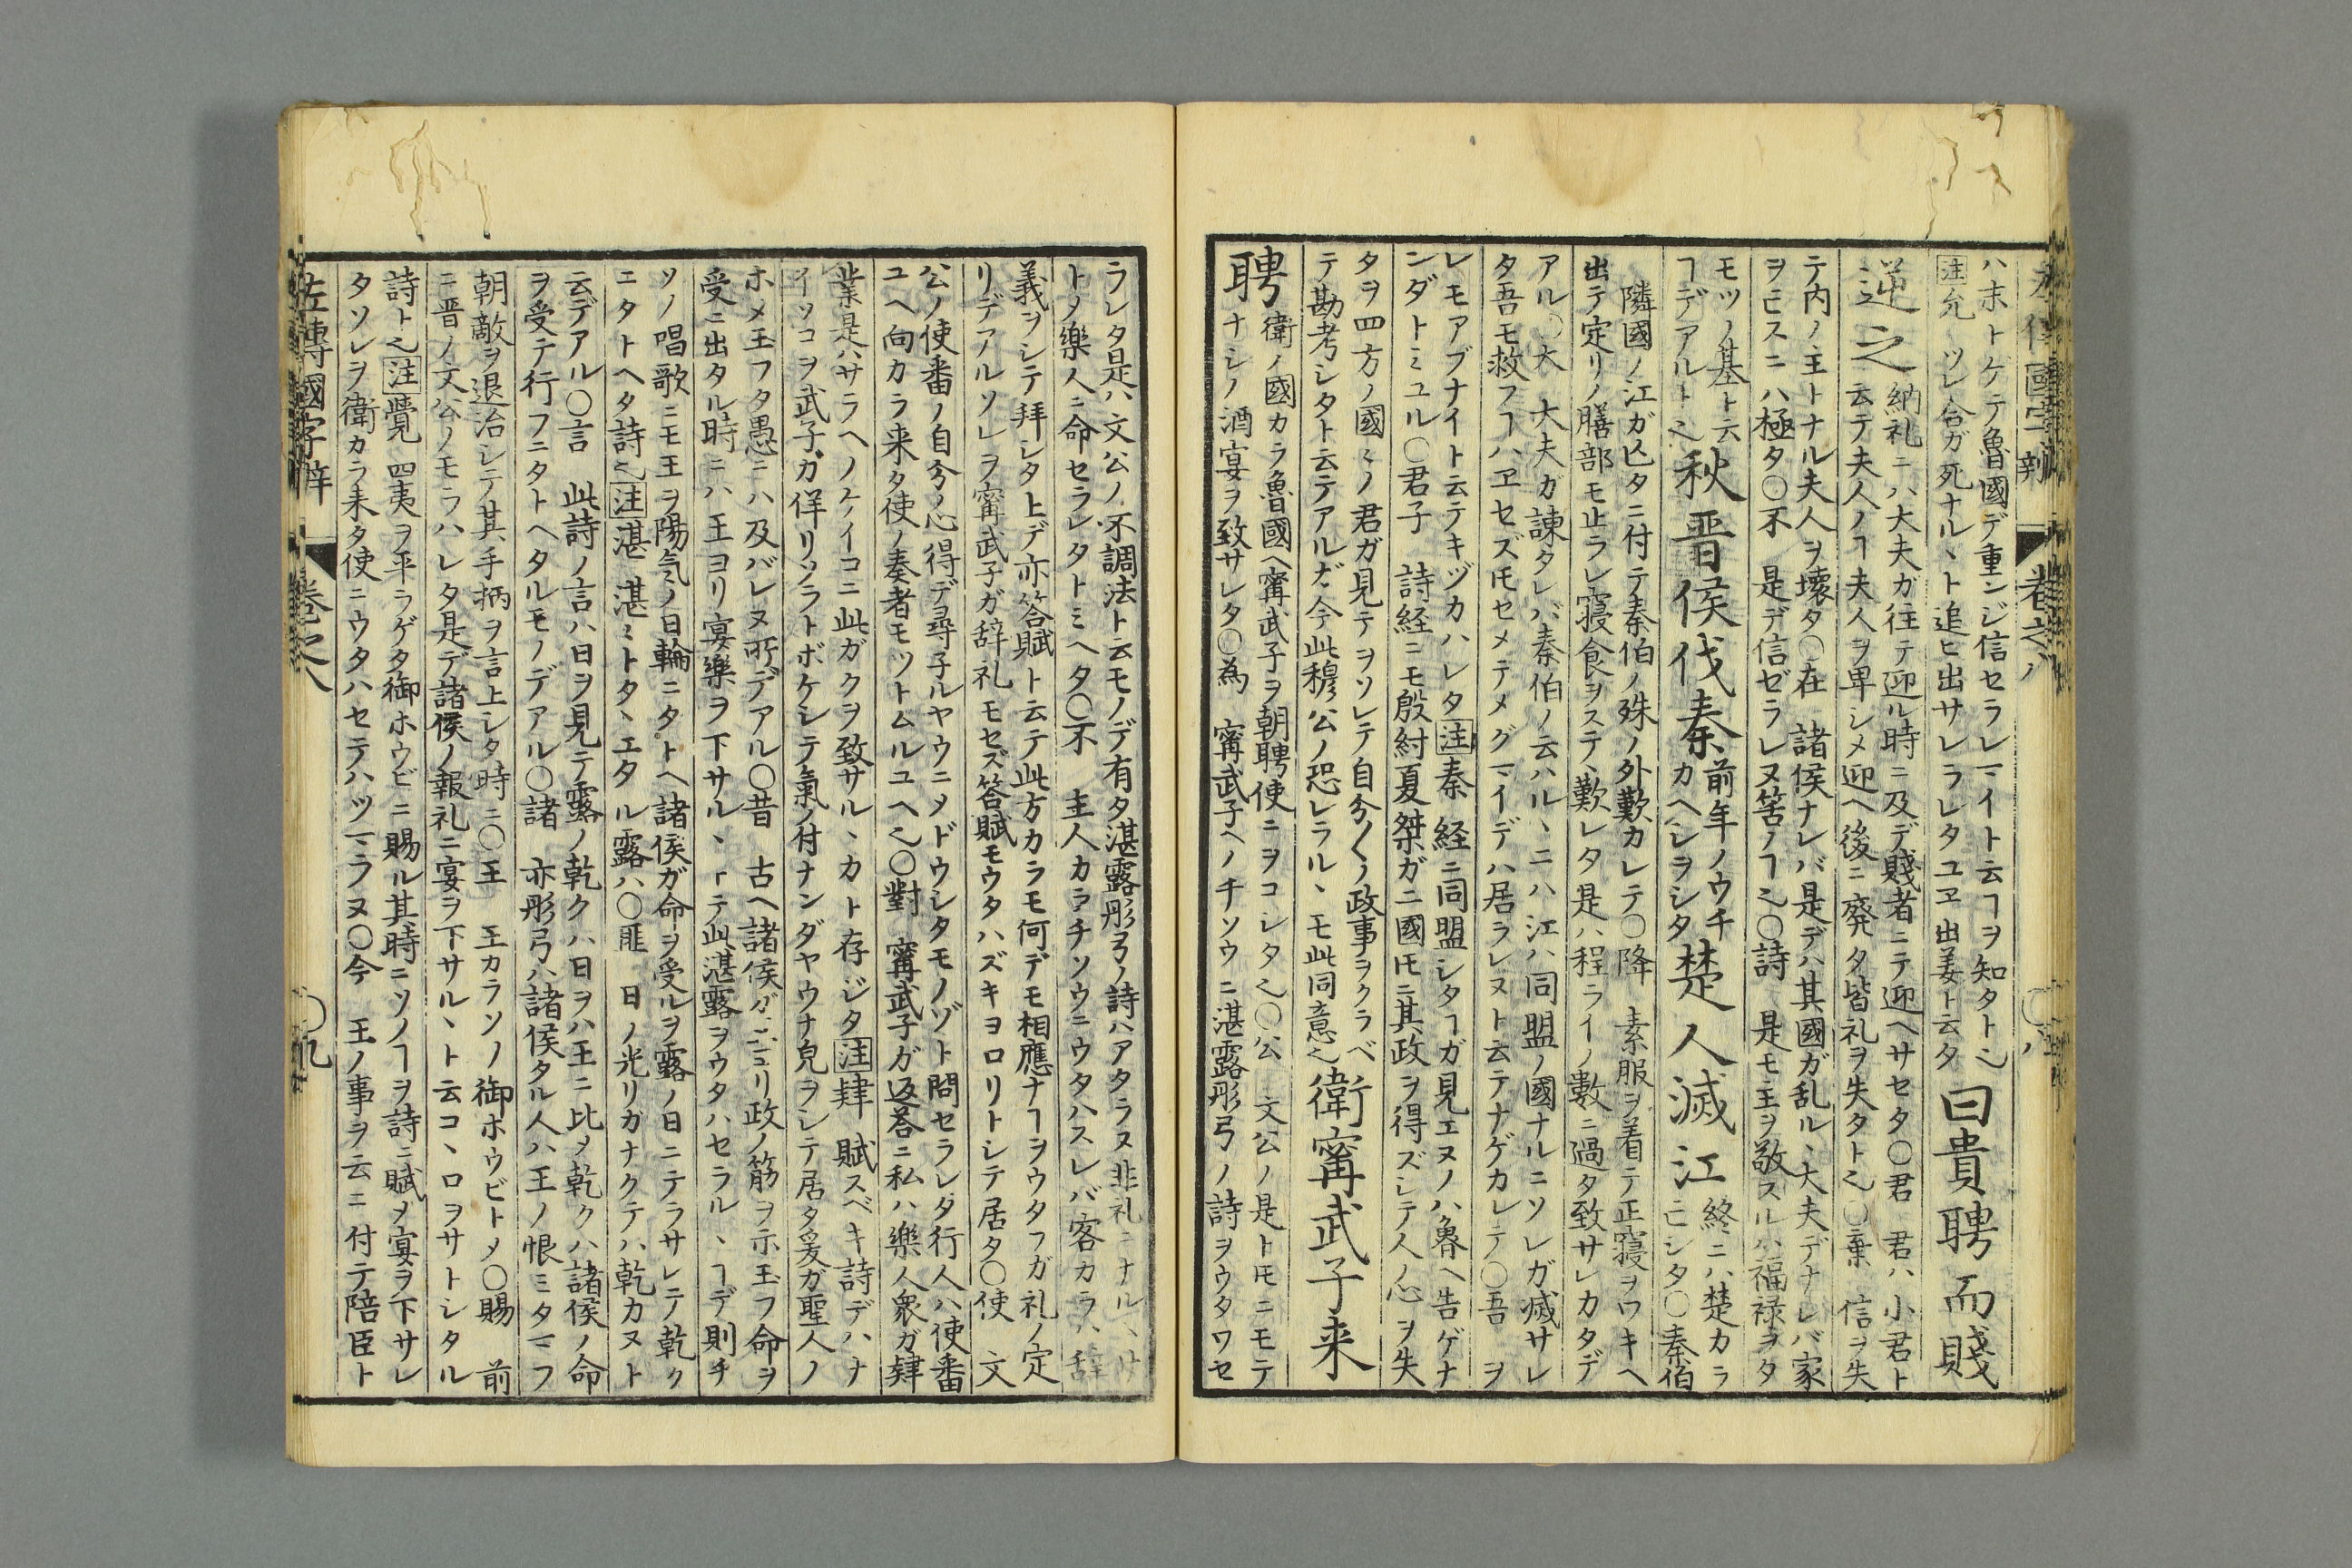 左傳國字辨 卷之八 〇八
ハ末トゲテ魯國デ重ンジ信セラレマイト云ヿヲ知タト也
注允 ソレ合ガ死ナル丶ト追ヒ出サレラレタユヱ出姜ト云タ
曰貴聘而賤
逆之
納礼ニハ大夫ガ往テ迎ル時ニ及デ賤者ニテ迎ヘサセタ〇君 君ハ小君ト
云テ夫人ノヿ夫人ヲ卑シメ迎ヘ後ニ廃タ皆礼ヲ失タト也〇棄 信ヲ失
テ内ノ主トナル夫人ヲ壊タ〇在 諸侯ナレバ是デハ其國ガ乱ル丶大夫デナレバ家
ヲ亡スニハ極タ〇不 是デ信ゼラレヌ筈ノヿ也〇詩 是モ主ヲ敬スルハ福禄ヲタ
モツノ基ト云
ヿデアルト也
秋晋侯伐秦
前年ノウチ
カヘレヲシタ
楚人滅江
終ニハ楚カラ
亡シタ〇秦伯
隣國ノ江ガ亡タニ付テ秦伯ノ殊ノ外歎カレテ〇降 素服ヲ着テ正寝ヲワキヘ
出テ定リノ膳部モ止ラレ寝食ヲステ丶歎レタ是ハ程ライノ數ニ過タ致サレカタデ
アル〇大 大夫ガ諌タレバ秦伯ノ云ハル丶ニハ江ハ同盟ノ國ナルニソレガ滅サレ
タ吾モ救フヿハヱセズ𪜈セメテメグマイデハ居ラレヌト云テナゲカレテ〇吾 ヲ
レモアブナイト云テキヅカハレタ注秦 経ニ同盟シタヿガ見エヌノハ魯ヘ告ゲナ
ンダトミユル〇君子 詩経ニモ殷紂夏桀ガ二國𪜈ニ其政ヲ得ズシテ人ノ心ヲ失
タヲ四方ノ國々ノ君ガ見テヲソレテ自分〱ノ政事ヲクラベ
テ勘考シタト云テアルガ今此穆公ノ恐レラル丶モ此同意也
衛甯武子来
聘
衛ノ國カラ魯國ヘ甯武子ヲ朝聘使ニヲコシタ也〇公 文公ノ是ト𪜈ニモテ
ナシノ酒宴ヲ致サレタ〇為 甯武子ヘノチソウニ湛露彤弓ノ詩ヲウタワセ
ラレタ是ハ文公ノ不調法ト云モノデ有タ湛露彤弓ノ詩ハアタラヌ非礼ニナル丶
トノ樂人ニ命セラレタトミヘタ〇不 主人カラチソウニウタハスレバ客カラハ辞
義ヲシテ拜シタ上デ亦答賦ト云テ此方カラモ何デモ相應ナヿヲウタフガ礼ノ定
リデアルソレヲ甯武子ガ辞礼モセズ答賦モウタハズキヨロリトシテ居タ〇使 文
公ノ使番ノ自分ノ心得デ尋子ルヤウニメドウシタモノゾト問セラレタ行人ハ使番
ユヘ向カラ来タ使ノ奏者モツトムルユヘ也〇對 甯武子ガ返答ニ私ハ樂人衆ガ肄
業是ハサラヘノケイコニ此ガクヲ致サル丶カト存ジタ注肄 賦スベキ詩デハナ
イソコヲ武子ガ佯リソラトボケシテ氣ノ付ナンダヤウナ皃ヲシテ居タ爰ガ聖人ノ
ホメ玉フタ愚ニハ及バレヌ所デアル〇昔 古ヘ諸侯ガ ヨリ政ノ筋ヲ示玉フ命ヲ
受ニ出タル時ニハ王ヨリ宴樂ヲ下サル丶トテ此湛露ヲウタハセラル丶ヿデ則チ
ソノ唱歌ニモ王ヲ陽気ノ日輪ニタトヘ諸侯ガ命ヲ受ルヲ露ノ日ニテラサレテノ乾ク
ニタトヘタ詩也注湛 湛々トタ丶エタル露ハ〇匪 日ノ光リガナクテハ乾カヌト
云デアル〇言 此詩ノ言ハ日ヲ見テ露ノ乾クハ日ヲハ王ニ比メ乾クハ諸侯ノ命
ヲ受テ行フニタトヘタルモノデアル〇諸 亦彤弓ハ諸侯タル人ハ王ノ恨ミタマフ
朝敵ヲ退治シテ其手柄ヲ言上シタ時ニ〇王 王カラソノ御ホウビトメ〇賜 前
ニ晋ノ文公ノモラハレタ是デ諸侯ノ報礼ニ宴ヲ下サル丶ト云コ丶ロヲサトシタル
詩ト也注覺 四夷ヲ平ラゲタ御ホウビニ賜ル其時ニソノヿヲ詩ニ賦メ宴ヲ下サレ
タソレヲ衛カラ来タ使ニウタハセテハツマラヌ〇今 王ノ事ヲ云ニ付テ陪臣ト
左傳國字辨 卷之八 〇九